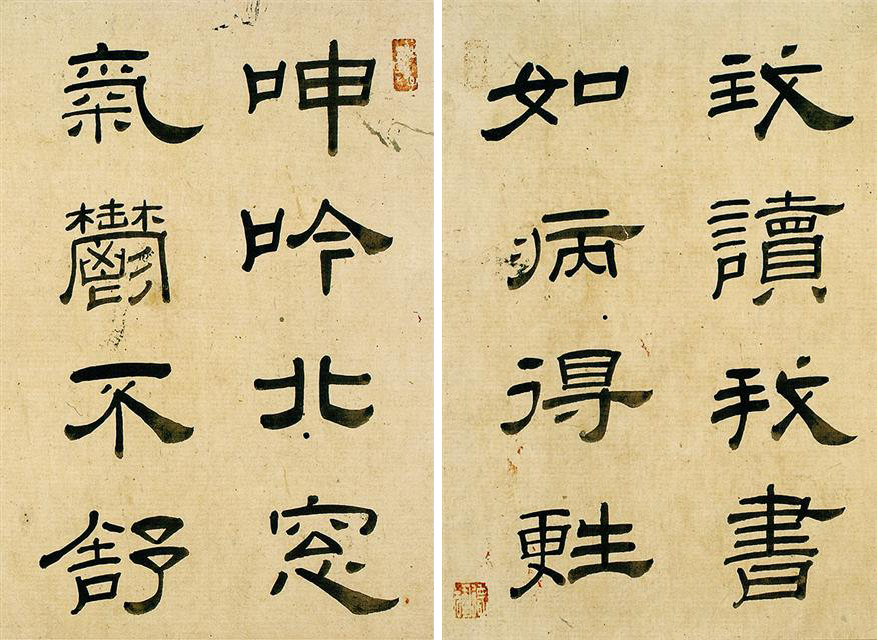 呻吟北窓
氣鬱不舒
我讀我書
如病得甦